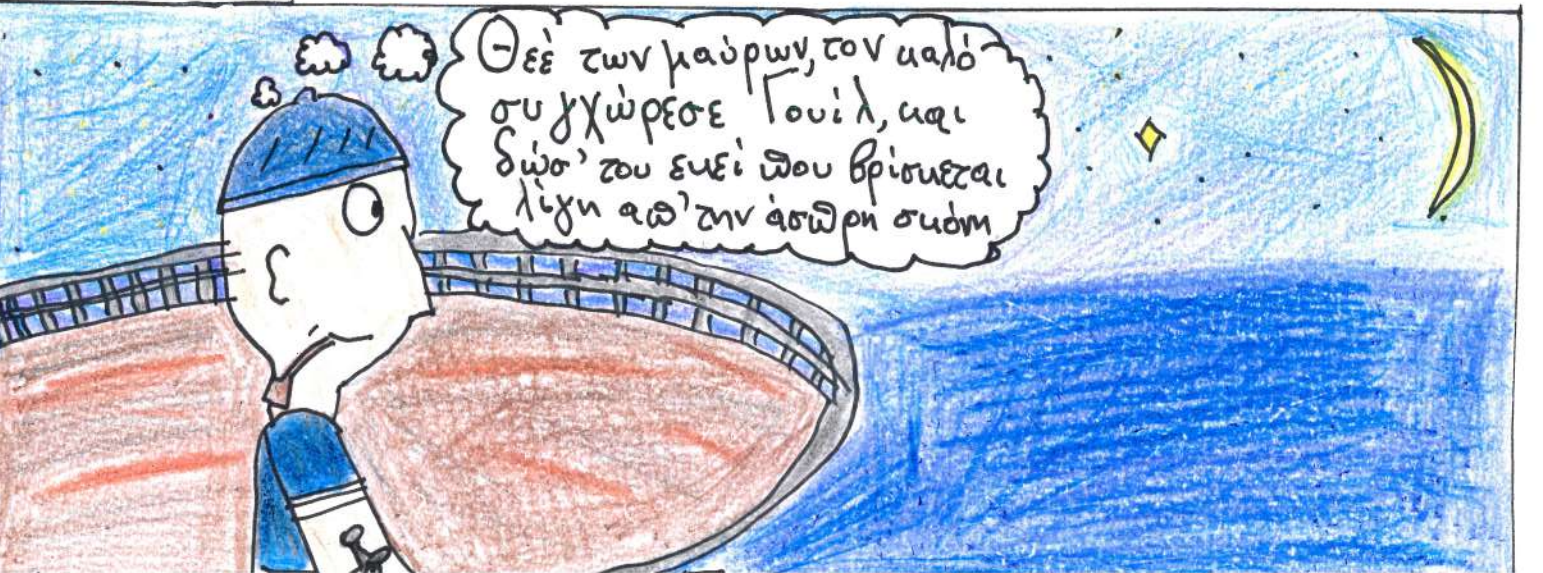 Θεέ των μαύρων, τον καλό
συγχώρεσε Γουίλ, και
δώσ' του εκεί που βρίσκεται
λίγη απ' την άσπρη σκόνη